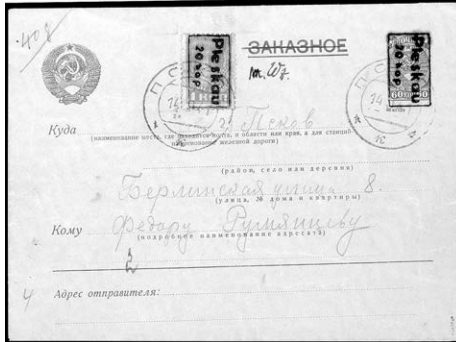 408
ЗАКАЗНОЕ
Pleskau
20 коp
Pleskau
20 коp
60 60
Куда г. Псков
(наименование места, где находится почта, и области или края, а для станций
наименование железной дороги)
(район, село или деревня)
Берлинская улица 8.
(улица, № дома и квартиры)
Кому Федору Румянцеву
(подробное наименование адресата)
4 Адрес отправителя: